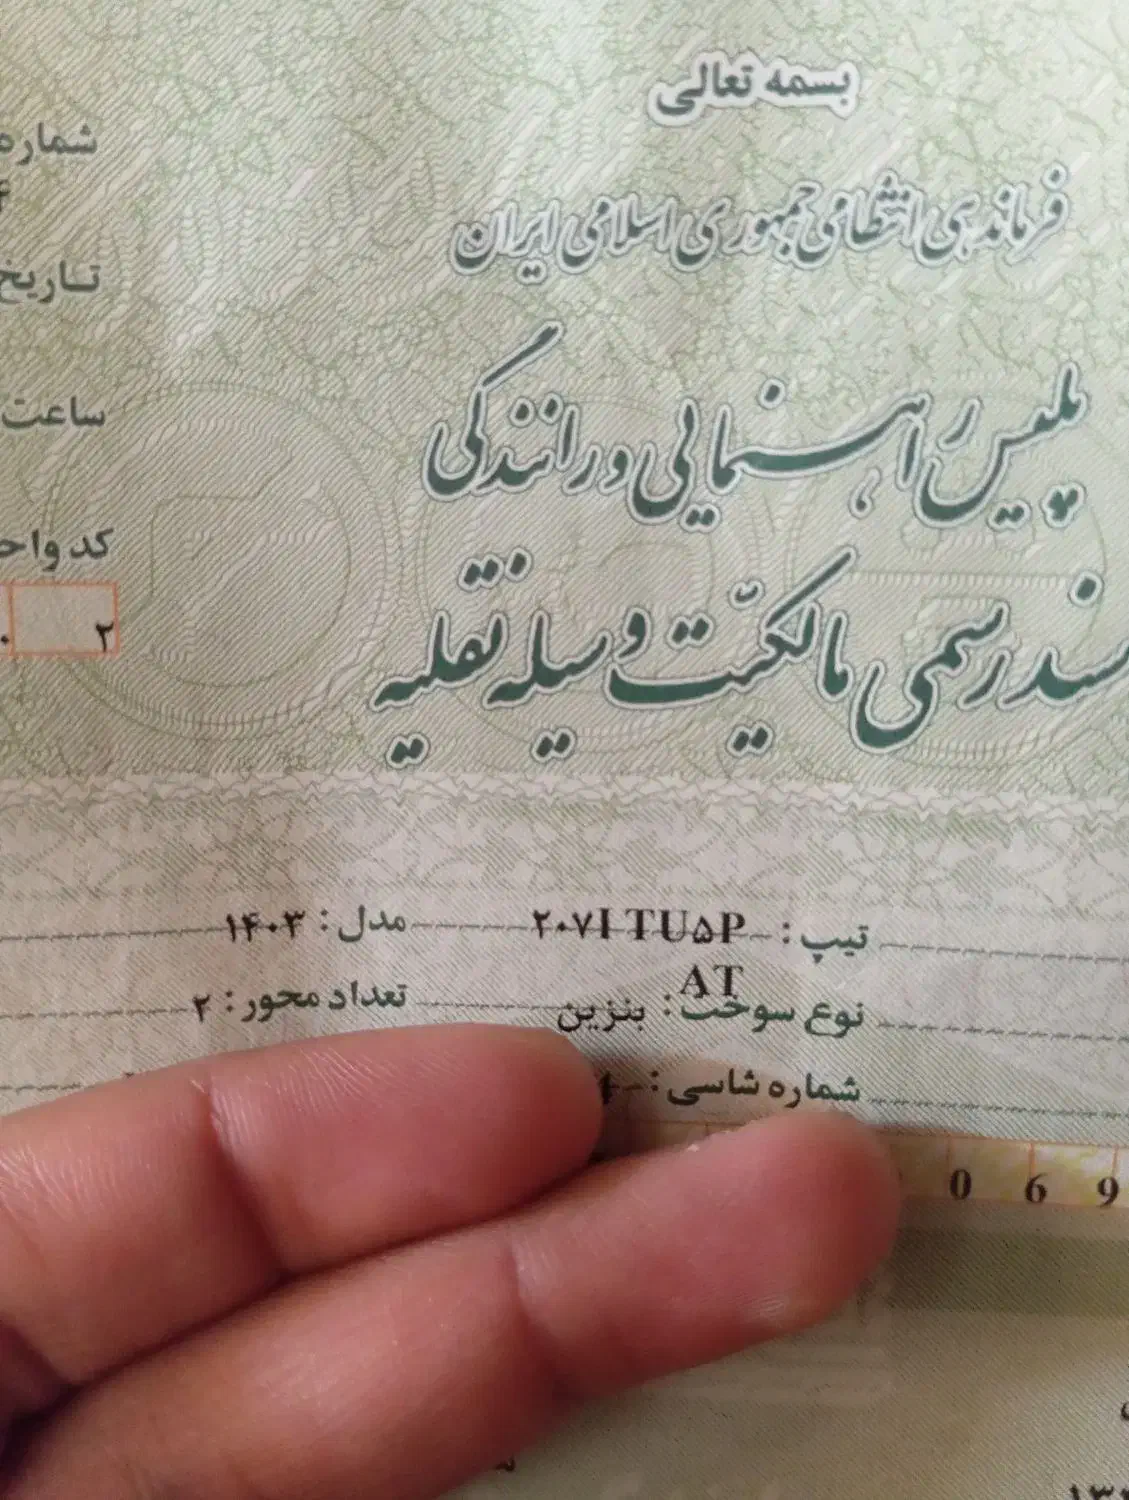 بسمه تعالی
فرماندهی انتظامی جمهوری اسلامی ایران
پلیس راهنمایی و رانندگی
سند رسمی مالکیّت وسیله نقلیه
شماره
تاریخ
ساعت
کد واحد
۲
تیپ: ۲۰۷I TU۵P AT
مدل: ۱۴۰۳
نوع سوخت: بنزین
تعداد محور: ۲
شماره شاسی:
0 6 9